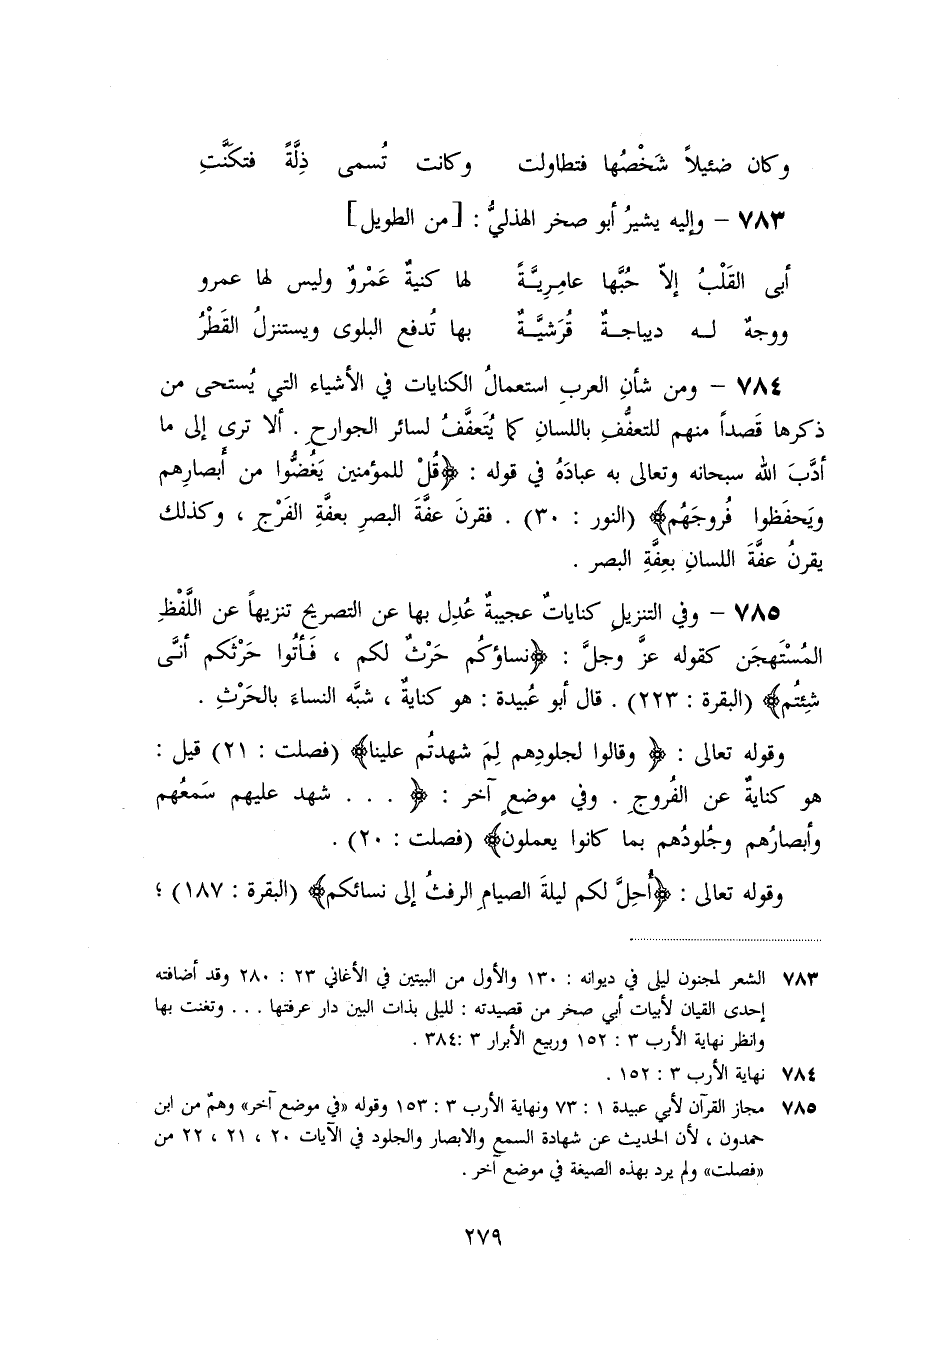 وكان ضئيلاً شَخْصُها فتطاولت وكانت تُسمى ذِلَّةً فتكَنَّتِ
٧٨٣ - وإليه يشيرُ أبو صخر الهذليُّ : [من الطويل]
أبى القَلْبُ إلاّ حُبَّها عامِرِيَّةً لها كنيةٌ عَمْروٌ وليس لها عمرو
ووجهٌ لـه ديباجـةٌ قُرَشيَّـةٌ بها تُدفع البلوى ويستنزلُ القَطْرُ
٧٨٤ - ومن شأنِ العربِ استعمالُ الكنايات في الأشياء التي يُستحى من
ذكرها قَصداً منهم للتعفُّفِ باللسانِ كما يُتَعفَّفُ لسائر الجوارحِ . ألا ترى إلى ما
أدَّبَ الله سبحانه وتعالى به عبادَهُ في قوله : ﴿قُلْ للمؤمنين يَغُضُّوا من أَبصارِهم
ويَحفَظوا فُروجَهُم﴾ (النور : ٣٠) . فقرنَ عفَّةَ البصرِ بعفَّةِ الفَرْجِ ، وكذلك
يقرنُ عفَّةَ اللسانِ بعِفَّةِ البصر .
٧٨٥ - وفي التنزيلِ كناياتٌ عجيبةٌ عُدِل بها عن التصريح تنزيهاً عن اللَّفْظِ
المُسْتَهجَن كقوله عزَّ وجلَّ : ﴿نساؤكُم حَرْثٌ لكم ، فَأتُوا حَرْثَكم أنَّى
شِئتُم﴾ (البقرة : ٢٢٣) . قال أبو عُبيدة : هو كنايةٌ ، شبَّه النساءَ بالحَرْثِ .
وقوله تعالى : ﴿ وقالوا لجلودِهم لِمَ شهدتُم علينا﴾ (فصلت : ٢١) قيل :
هو كنايةٌ عن الفُروجِ . وفي موضعٍ آخر : ﴿ . . . شهد عليهم سَمعُهم
وأبصارُهم وجُلودُهم بما كانوا يعملون﴾ (فصلت : ٢٠) .
وقوله تعالى : ﴿أُحِلَّ لكم ليلةَ الصيامِ الرفثُ إلى نسائكم﴾ (البقرة : ١٨٧) ؛
٧٨٣ الشعر لمجنون ليلى في ديوانه : ١٣٠ والأول من البيتين في الأغاني ٢٣ : ٢٨٠ وقد أضافته
إحدى القيان لأبيات أبي صخر من قصيدته : لليلى بذات البين دار عرفتها . . . وتغنت بها
وانظر نهاية الأرب ٣ : ١٥٢ وربيع الأبرار ٣ :٣٨٤ .
٧٨٤ نهاية الأرب ٣ : ١٥٢ .
٧٨٥ مجاز القرآن لأبي عبيدة ١ : ٧٣ ونهاية الأرب ٣ : ١٥٣ وقوله «في موضع آخر» وهمٌ من ابن
حمدون ، لأن الحديث عن شهادة السمع والابصار والجلود في الآيات ٢٠ ، ٢١ ، ٢٢ من
«فصلت» ولم يرد بهذه الصيغة في موضع آخر .
٢٧٩